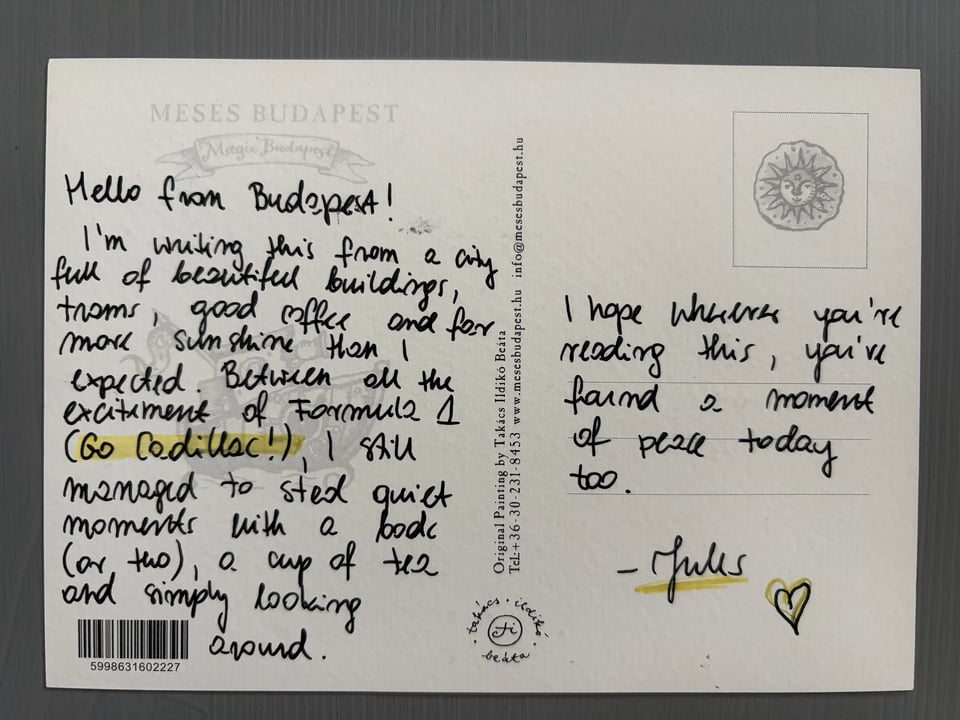 MESÉS BUDAPEST
Magic Budapest
Hello from Budapest!
I'm writing this from a city
full of beautiful buildings,
trams, good coffee and far
more sunshine than I
expected. Between all the
excitement of Formula 1
(Go Cadillac!), I still
managed to steal quiet
moments with a book
(or two), a cup of tea
and simply looking
around.
5998631602227
Original Painting by Takács Ildikó Beáta
Tel.:+36-30-231-8453 www.mesesbudapest.hu info@mesesbudapest.hu
takács · ildikó
beáta
I hope wherever you're
reading this, you're
found a moment
of peace today
too.
– Jules